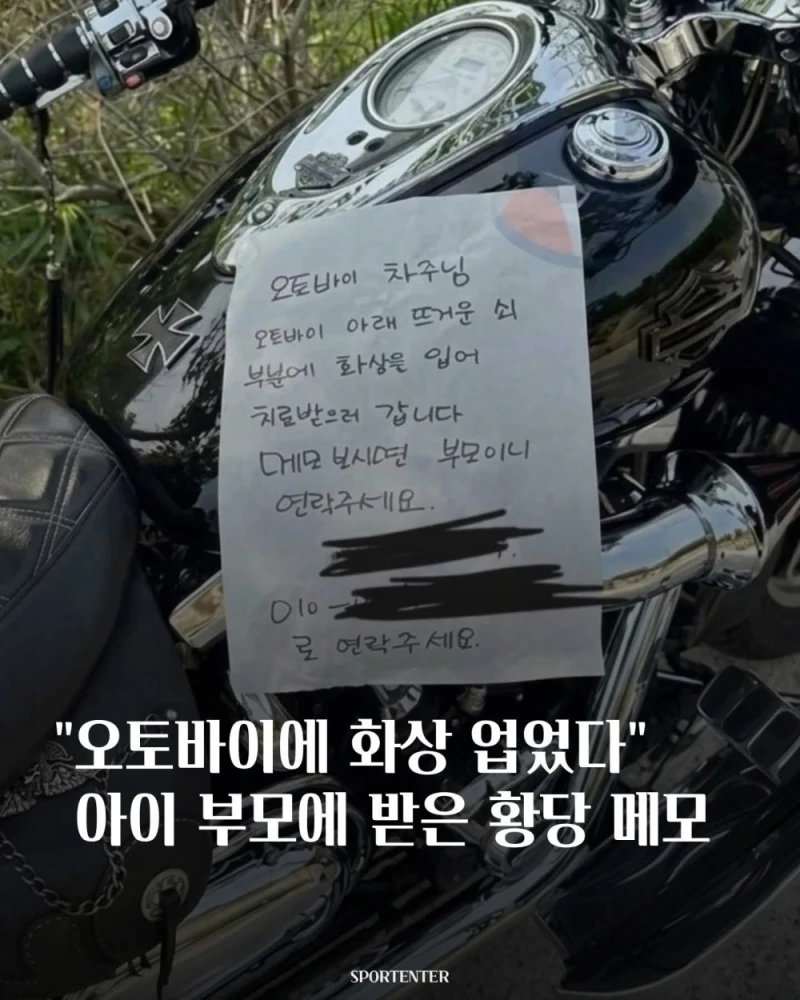 오토바이 차주님
오토바이 아래 뜨거운 쇠
부분에 화상을 입어
치료받으러 갑니다
메모 보시면 부모이니
연락주세요.
010-
로 연락주세요.
"오토바이에 화상 업었다"
아이 부모에 받은 황당 메모
SPORTENTER